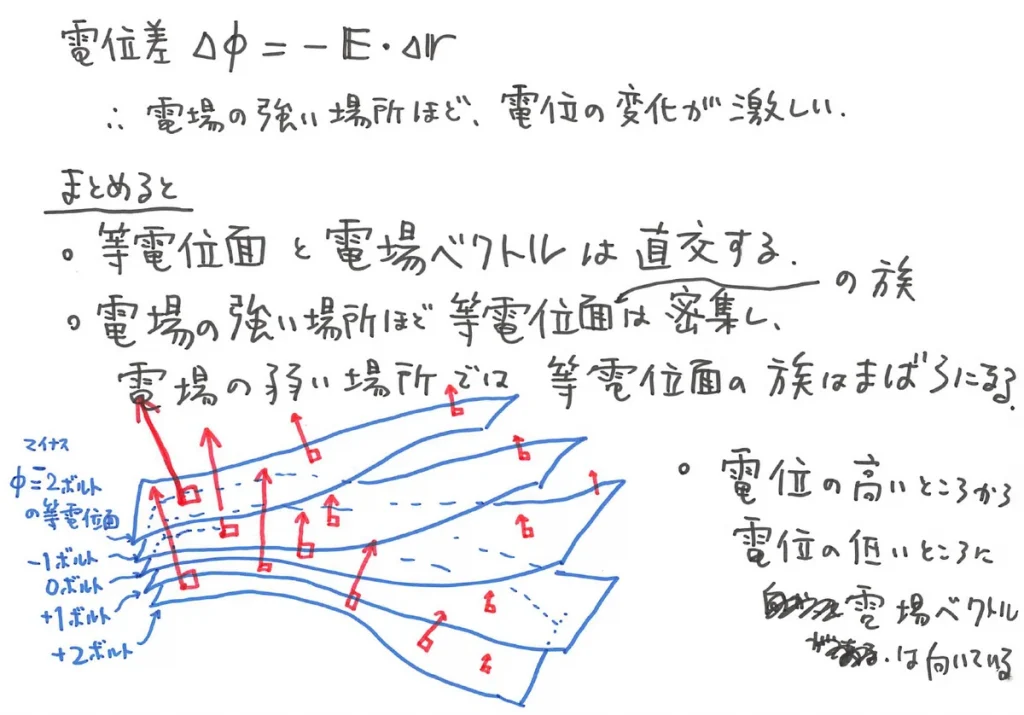 電位差 Δφ = - E・Δr
∴ 電場の強い場所ほど、電位の変化が激しい.
まとめると
。等電位面 と 電場ベクトル は 直交する.
。電場の強い場所ほど 等電位面の族は 密集し、
電場の弱い場所では 等電位面の 族はまばらになる.
マイナス
φ=-2ボルト
の等電位面
-1ボルト
0ボルト
+1ボルト
+2ボルト
。電位の高いところから
電位の低いところに
電場ベクトル
は向いている